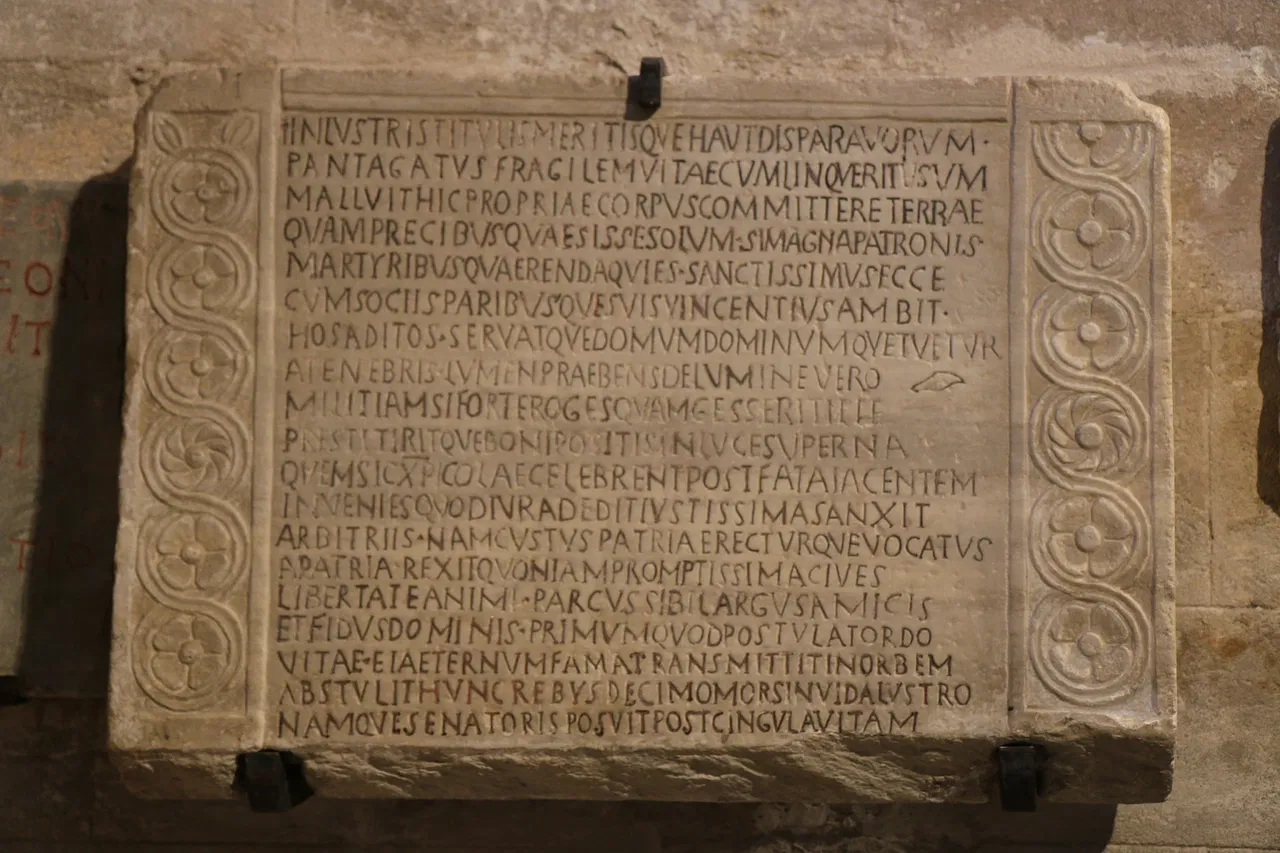 INLVSTRISTITVLISMERITISQVEHAVTDISPARAVORVM·
PANTAGATVSFRAGILEMVITAECVMLINQVERITVSVM
MALLVITHICPROPRIAECORPVSCOMMITTERETERRAE
QVAMPRECIBVSQVAESISSESOLVM·SIMAGNAPATRONIS
MARTYRIBVSQVAERENDAQVIES·SANCTISSIMVSECCE
CVMSOCIISPARIBVSQVESVISVINCENTIVSAMBIT·
HOSADITOS·SERVATQVEDOMVMDOMINVMQVETVETVR
ATENEBRIS·LVMENPRAEBENSDELVMINEVERO
MILITIAMSIFORTEROGESQVAMGESSERITILLE
PRESTITIRITQVEBONIPOSITISINLVCESVPERNA
QVEMSICXPICOLAECELEBRENTPOSTFATAIACENTEM
INVENIESQVODIVRADEDITIVSTISSIMASANXIT
ARBITRIIS·NAMCVSTVSPATRIAERECTVRQVEVOCATVS
APATRIA·REXITQVONIAMPROMPTISSIMACIVES
LIBERTATEANIMI·PARCVSSIBILARGVSAMICIS
ETFIDVSDOMINIS·PRIMVMQVODPOSTVLATORDO
VITAE·EIAETERNVMFAMATRANSMITTITINORBEM
ABSTVLITHVNCREBVSDECIMOMORSINVIDALVSTRO
NAMQVESENATORISPOSVITPOSTCINGVLAVITAM